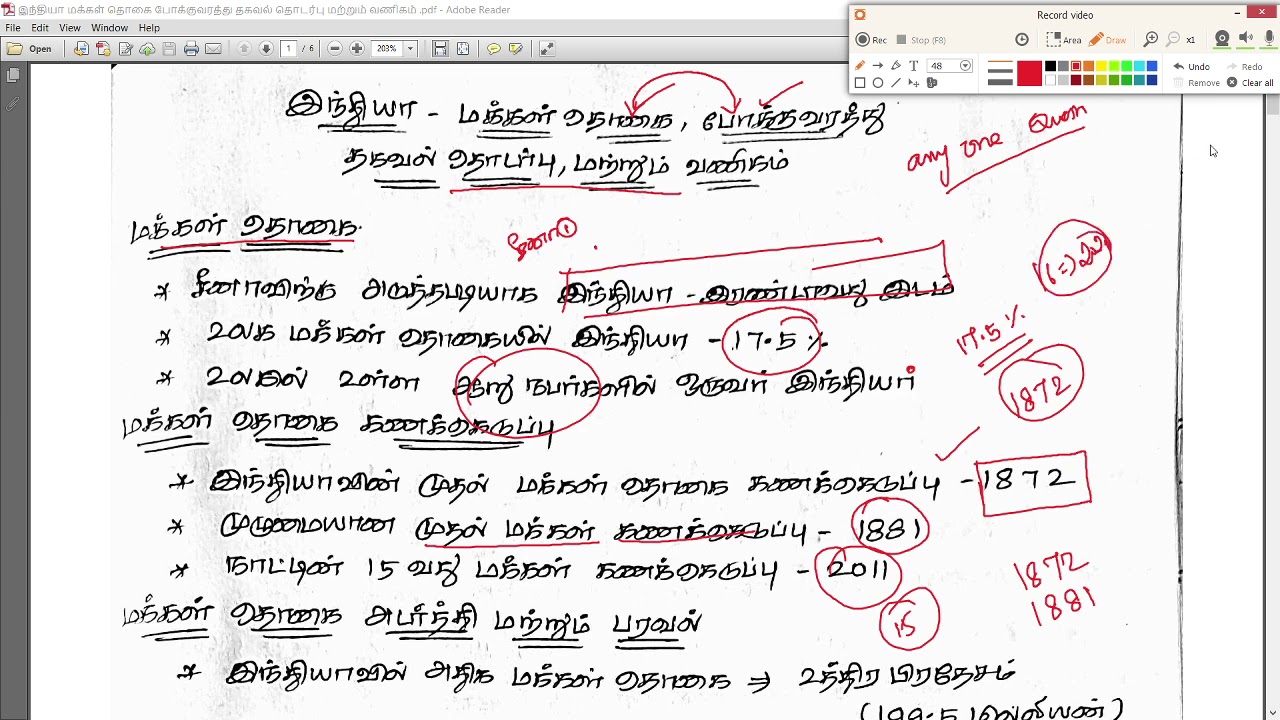 இந்தியா மக்கள் தொகை போக்குவரத்து தகவல் தொடர்பு மற்றும் வணிகம் .pdf - Adobe Reader
File Edit View Window Help
Open 1 / 6 203%
Record video
Rec Stop (F8) Area Draw x1
T 48 Undo Redo
Remove Clear all
இந்தியா - மக்கள் தொகை, போக்குவரத்து
தகவல் தொடர்பு, மற்றும் வணிகம்
any one
மக்கள் தொகை
சீனா ①
* சீனாவிற்கு அடுத்தபடியாக இந்தியா - இரண்டாவது இடம்
* உலக மக்கள் தொகையில் இந்தியா - 17.5 %
17.5 %
* உலகில் உள்ள ஆறு நபர்களில் ஒருவர் இந்தியர்
1872
மக்கள் தொகை கணக்கெடுப்பு
* இந்தியாவின் முதல் மக்கள் தொகை கணக்கெடுப்பு - 1872
* முழுமையான முதல் மக்கள் கணக்கெடுப்பு - 1881
* நாட்டின் 15 வது மக்கள் கணக்கெடுப்பு - 2011
1872
1881
15
மக்கள் தொகை அடர்த்தி மற்றும் பரவல்
* இந்தியாவில் அதிக மக்கள் தொகை ⇒ உத்திர பிரதேசம்
(199.5 மில்லியன்)